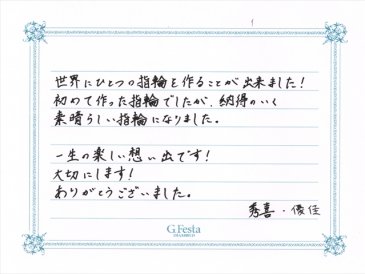 世界にひとつの指輪を作ることが出来ました!
初めて作った指輪でしたが、納得のいく
素晴らしい指輪になりました。
一生の楽しい想い出です!
大切にします!
ありがとうございました。
秀喜・優佳
G.Festa